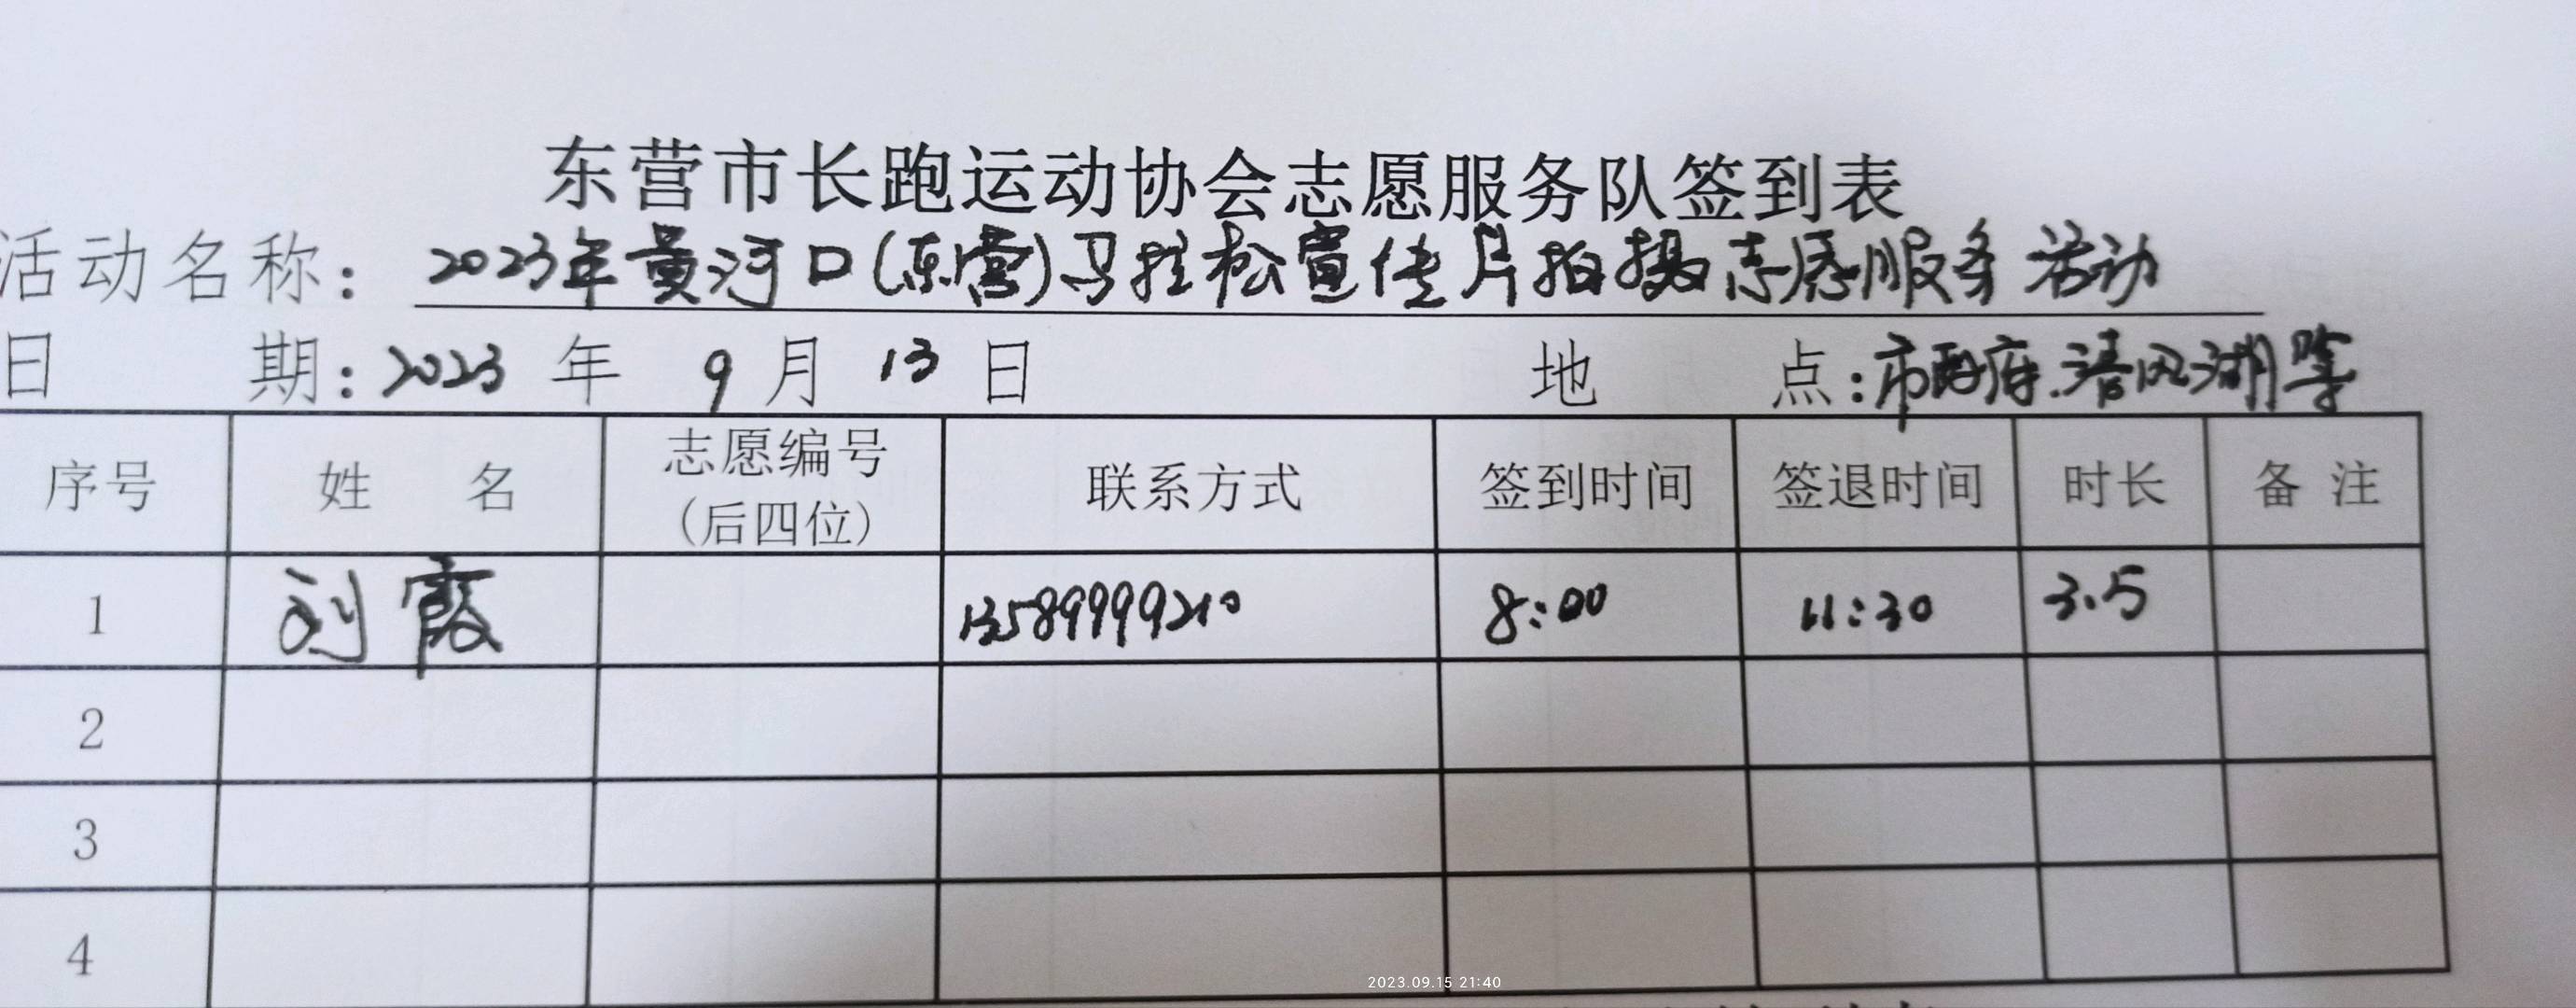 东营市长跑运动协会志愿服务队签到表
活动名称：2023年黄河口(东营)马拉松宣传片拍摄志愿服务活动
日 期：2023 年 9 月 13 日 地 点：市政府.清风湖等
序号 姓 名 志愿编号 联系方式 签到时间 签退时间 时长 备 注
(后四位)
1 刘霞 13589999210 8:00 11:30 3.5
2
3
4
2023.09.15 21:40